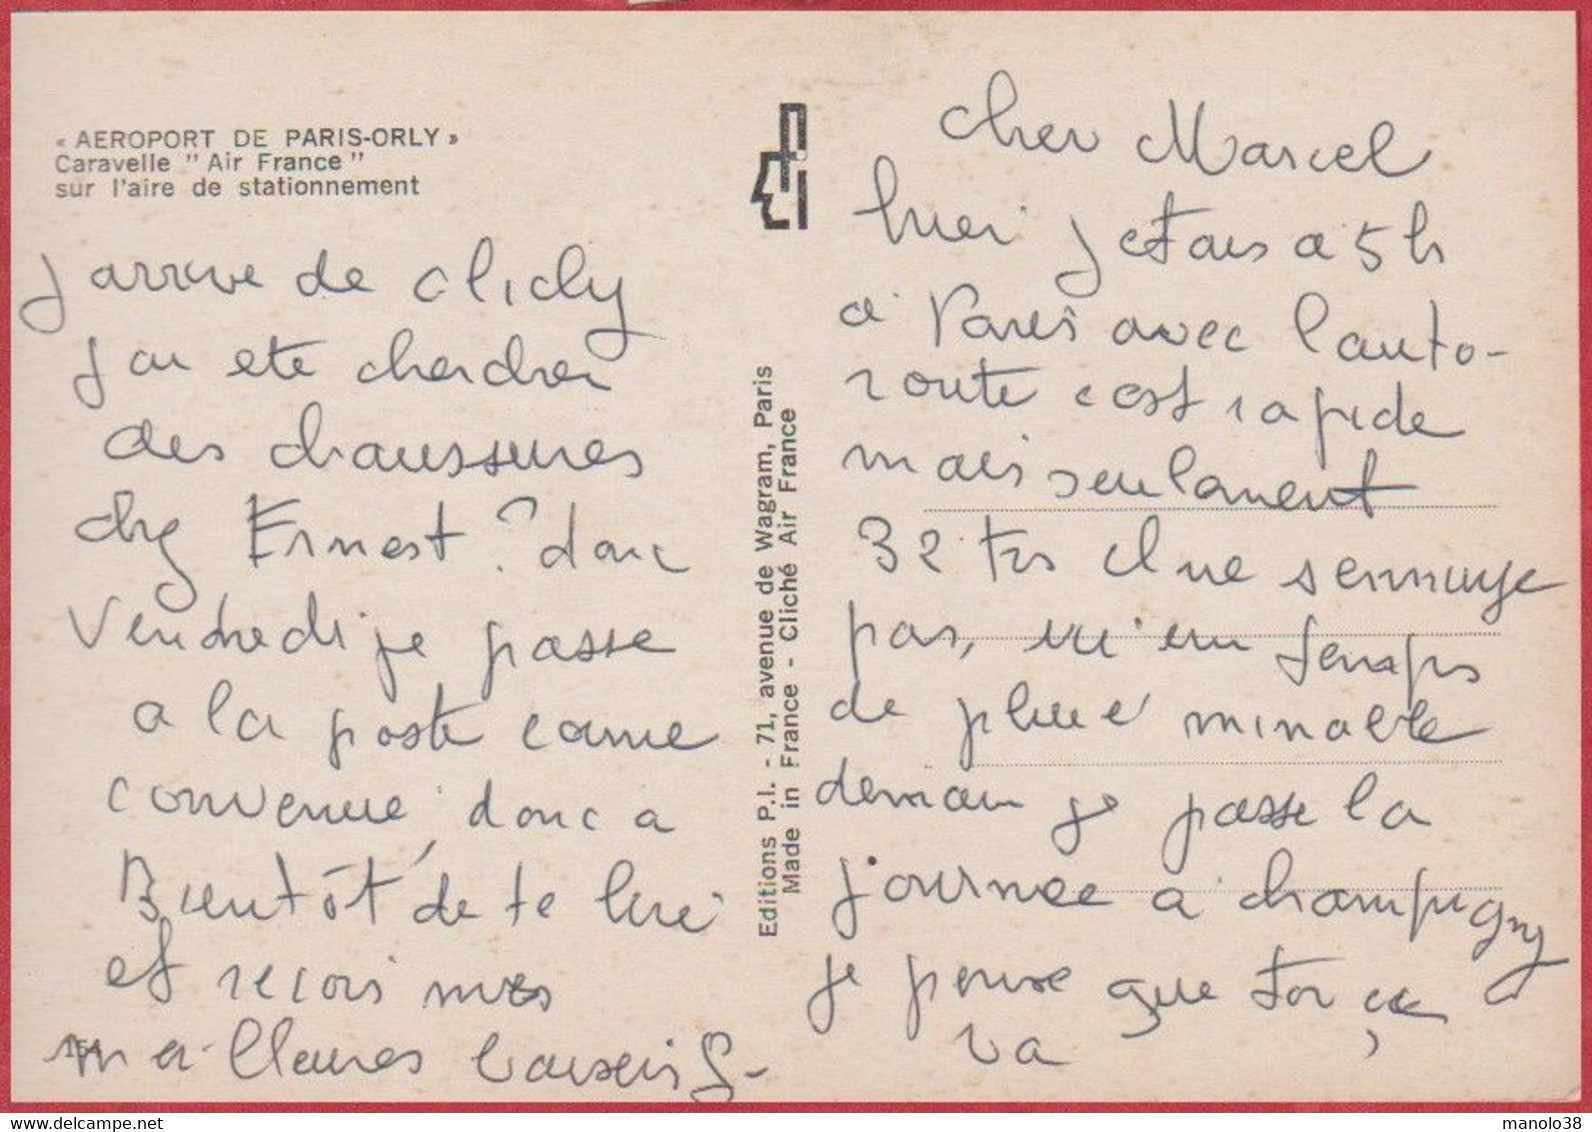 « AEROPORT DE PARIS-ORLY »
Caravelle " Air France "
sur l'aire de stationnement
j arrive de clichy
j ai ete chercher
des chaussures
chez Ernest ? donc
Vendredi je passe
a la poste come
convenue, donc a
Bientôt de te lire
et recois mes
meilleures baisers
154
Editions P.I. - 71, avenue de Wagram, Paris
Made in France - Cliché Air France
cher Marcel
hier j etais a 5 h
a Paris avec l auto-
route c est rapide
mais seulement
32 frs il ne sennuye
pas, ici un temps
de pluie minable
demain je passe la
journee a champigny
je pense que toi ça
va
manolo38